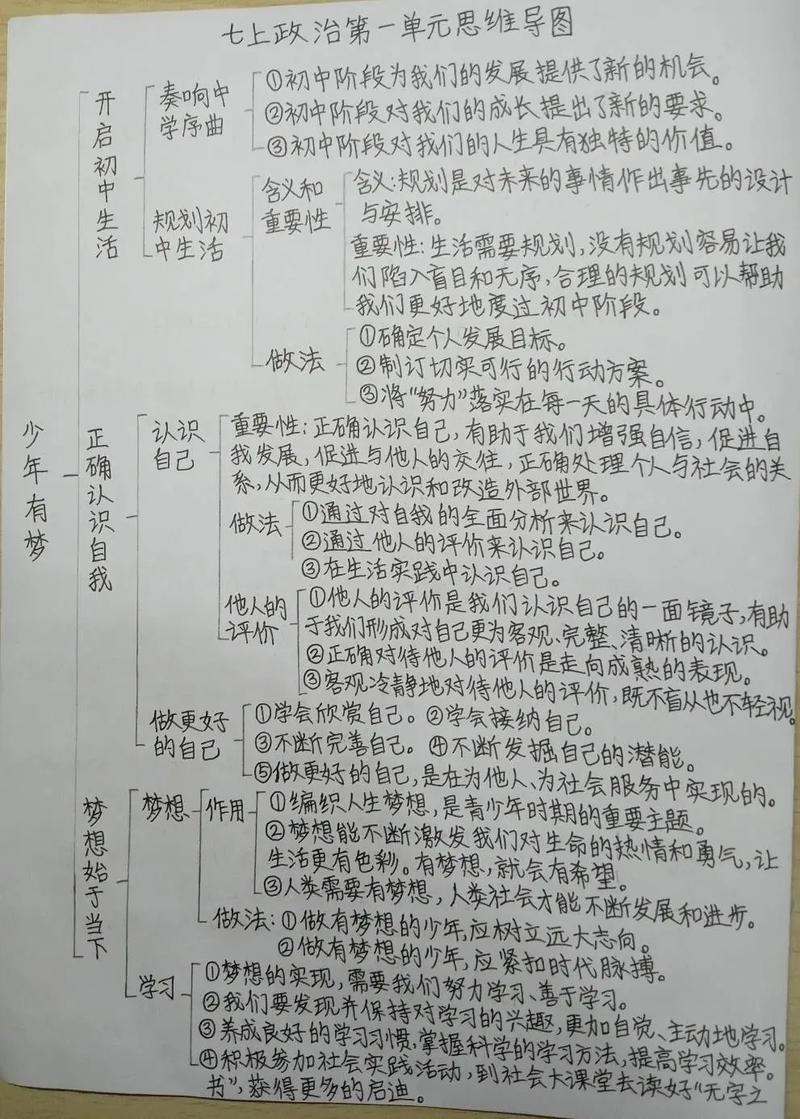 七上政治第一单元思维导图
少年有梦
开启初中生活
奏响中
学序曲
①初中阶段为我们的发展提供了新的机会。
②初中阶段对我们的成长提出了新的要求。
③初中阶段对我们的人生具有独特的价值。
规划初
中生活
含义和
重要性
含义:规划是对未来的事情作出事先的设计
与安排。
重要性:生活需要规划,没有规划容易让我
们陷入盲目和无序,合理的规划可以帮助
我们更好地度过初中阶段。
做法
①确定个人发展目标。
②制订切实可行的行动方案。
③将“努力”落实在每一天的具体行动中。
正确认识自我
认识
自己
重要性:正确认识自己,有助于我们增强自信,促进自
我发展,促进与他人的交往,正确处理个人与社会的关
系,从而更好地认识和改造外部世界。
做法
①通过对自我的全面分析来认识自己。
②通过他人的评价来认识自己。
③在生活实践中认识自己。
他人的
评价
①他人的评价是我们认识自己的一面镜子,有助
于我们形成对自己更为客观、完整、清晰的认识。
②正确对待他人的评价是走向成熟的表现。
③客观冷静地对待他人的评价,既不盲从也不轻视。
做更好
的自己
①学会欣赏自己。②学会接纳自己。
③不断完善自己。④不断发掘自己的潜能。
⑤做更好的自己,是在为他人、为社会服务中实现的。
梦想始于当下
梦想
作用
①编织人生梦想,是青少年时期的重要主题。
②梦想能不断激发我们对生命的热情和勇气,让
生活更有色彩。有梦想,就会有希望。
③人类需要有梦想,人类社会才能不断发展和进步。
做法:①做有梦想的少年,应树立远大志向。
②做有梦想的少年,应紧扣时代脉搏。
学习
①梦想的实现,需要我们努力学习、善于学习。
②我们要发现并保持对学习的兴趣,更加自觉、主动地学习。
③养成良好的学习习惯,掌握科学的学习方法,提高学习效率。
④积极参加社会实践活动,到社会大课堂去读好“无字之
书”,获得更多的启迪。